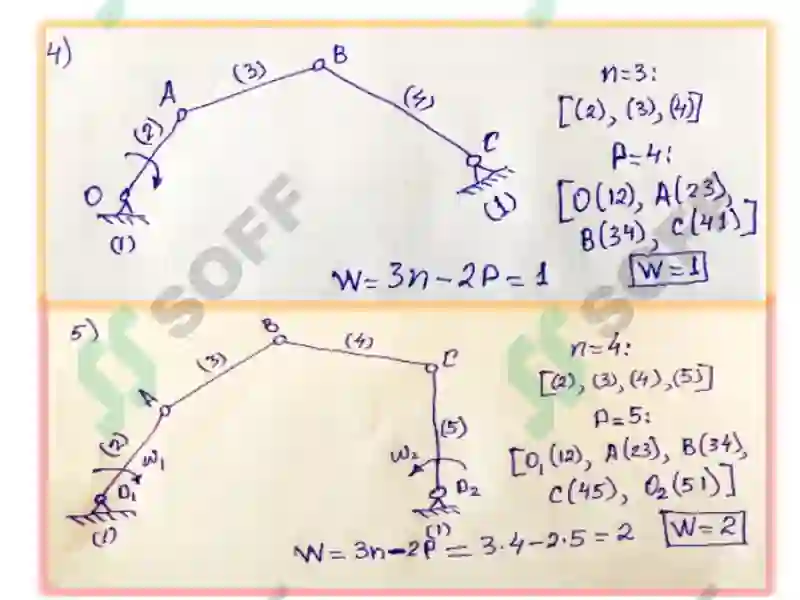 4)
B
(3)
n=3:
A
(4)
[(2), (3), (4)]
(2)
C
P=4:
O
[O(12), A(23),
(1)
(1)
B(34), C(41)]
W=3n-2P=1
W=1
SOFF
5)
B
(4)
n=4:
(3)
C
[(2), (3), (4), (5)]
A
P=5:
(2)
(5)
W₁
W₂
[O₁(12), A(23), B(34),
O₁
O₂
C(45), O₂(51)]
(1)
(1)
W=3n-2P=3·4-2·5=2
W=2
SOFF